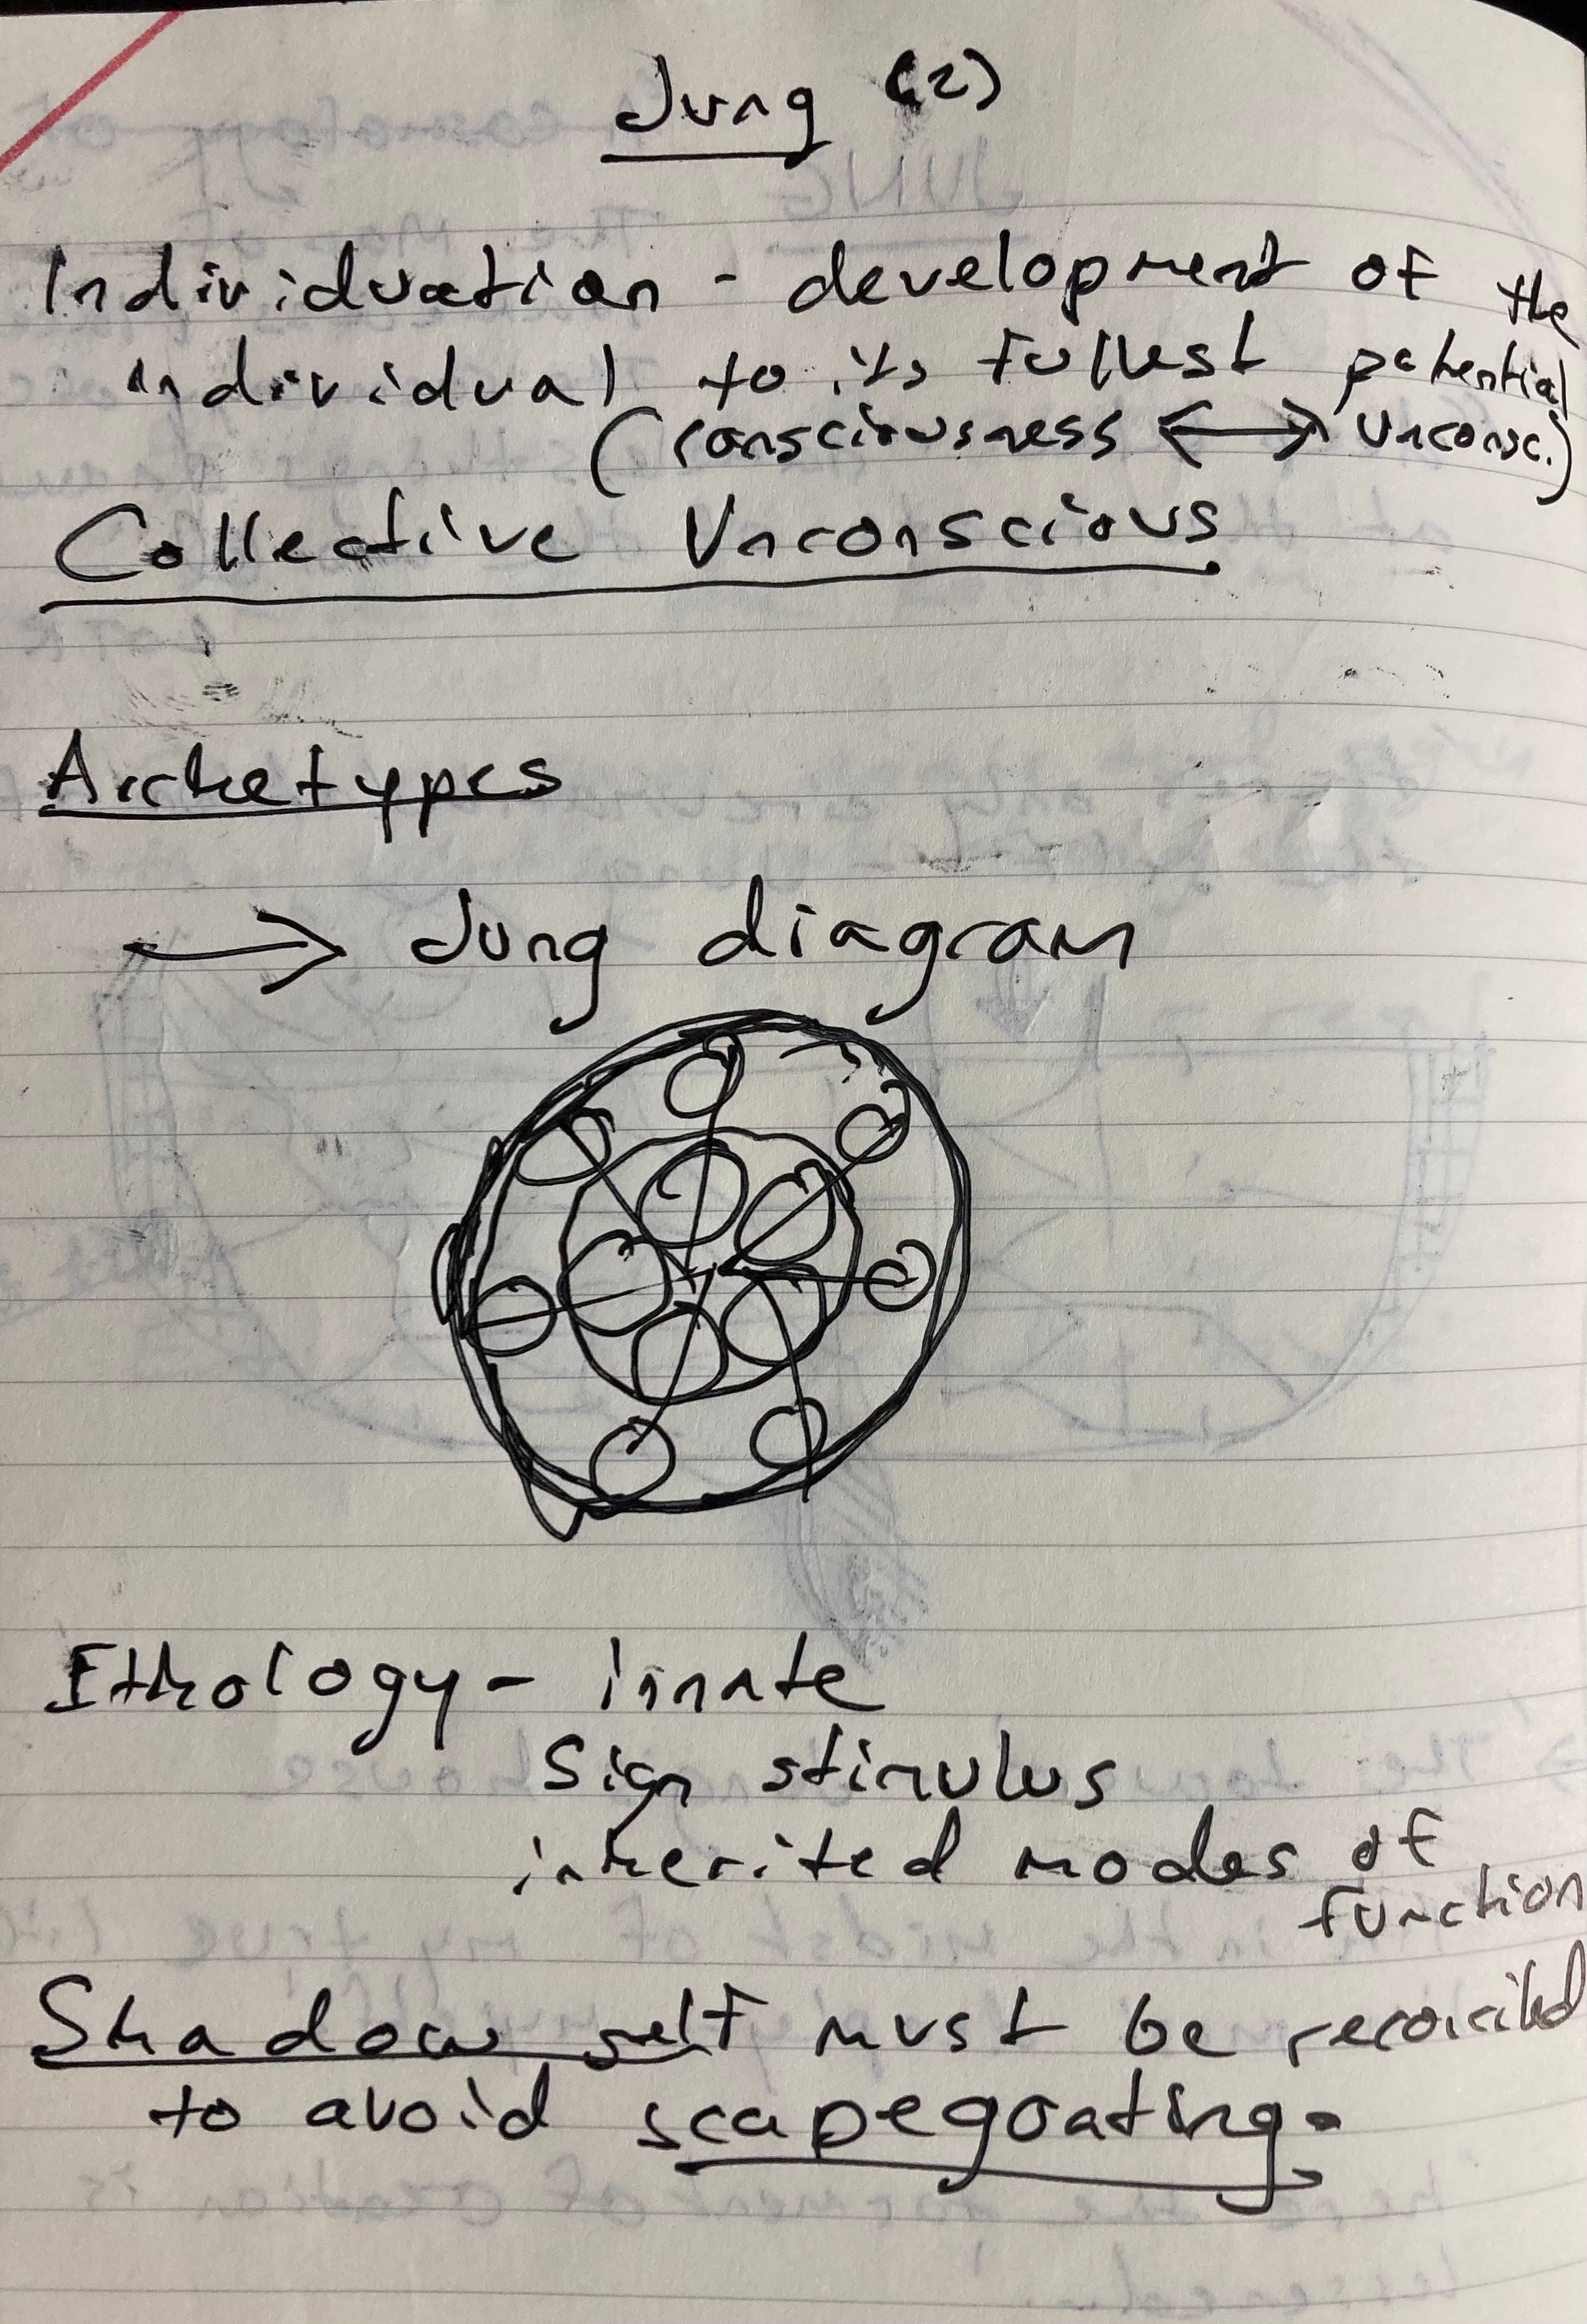 Jung (2)
Individuation - development of the
individual to its fullest potential
(consciousness ↔ unconsc.)
Collective Unconscious
Archetypes
→ Jung diagram
Ethology - innate
Sign stimulus
inherited modes of
function
Shadow self must be reconciled
to avoid scapegoating.